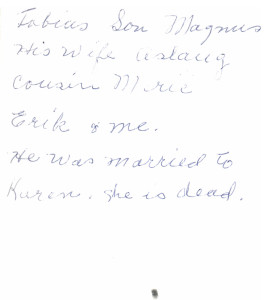 Tobias Son Magnus
His wife Aslaug
Cousin Marie
Erik & me.
He was married to
Karen. she is dead.